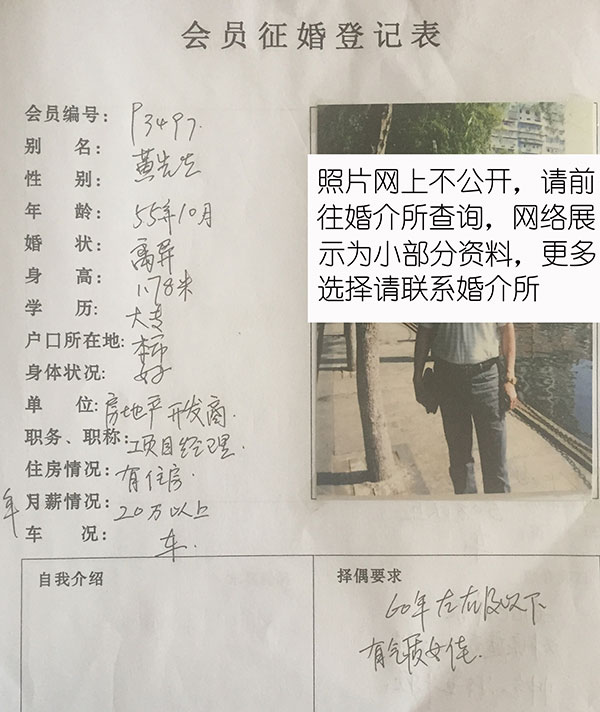 会员征婚登记表
会员编号: P3497.
别 名: 黄先生
性 别:
年 龄: 55年10月
婚 状: 离异
身 高: 1.78米
学 历: 大专
户口所在地: 本市
身体状况: 好
单 位: 房地产开发商.
职务、职称: 项目经理.
住房情况: 有住房.
年 月薪情况: 20万以上
车 况: 车.
照片网上不公开，请前
往婚介所查询，网络展
示为小部分资料，更多
选择请联系婚介所
自我介绍
择偶要求
60年左右及以下
有气质女佳.